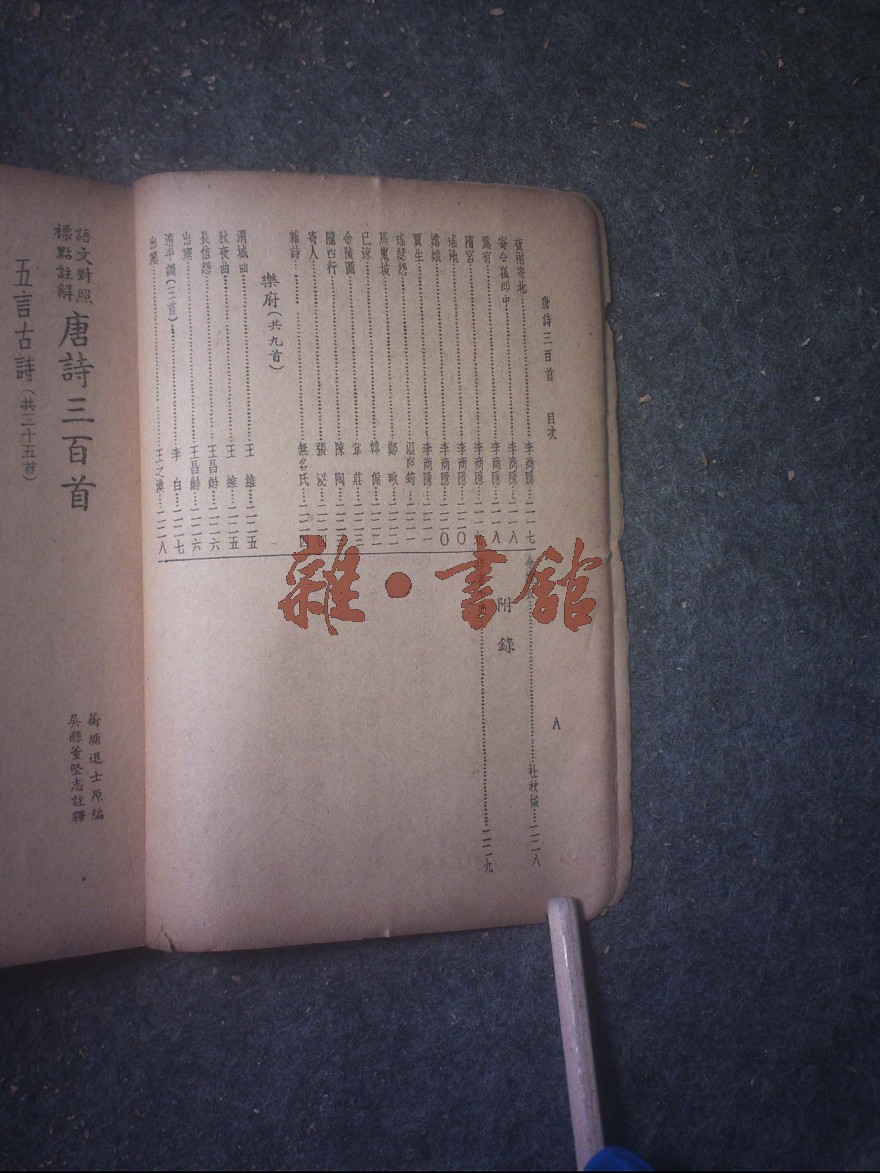 唐詩三百首 目次
八
夜雨寄北……李商隱…二一七
寄令狐郎中……李商隱…二一八
爲有……李商隱…二一八
隋宮……李商隱…二一
瑤池……李商隱…二二〇
嫦娥……李商隱…二二〇
賈生……李商隱…二二一
瑤瑟怨……溫庭筠…二二一
馬嵬坡……鄭畋…二二二
已涼……韓偓…二二二
金陵圖……韋莊…二二三
隴西行……陳陶…二二三
寄人……張泌…二二四
雜詩……無名氏…二二四
樂府(共九首)
渭城曲……王維…二二五
秋夜曲……王維…二二五
長信怨……王昌齡…二二六
出塞……王昌齡…二二六
清平調(三首)……李白…二二七
出塞……王之渙…二二八
杜秋娘…二二八
附錄
二二九
語文對照
標點註解
唐詩三百首
蘅塘退士原編
吳縣董堅志註釋
五言古詩(共三十五首)
雜·書館